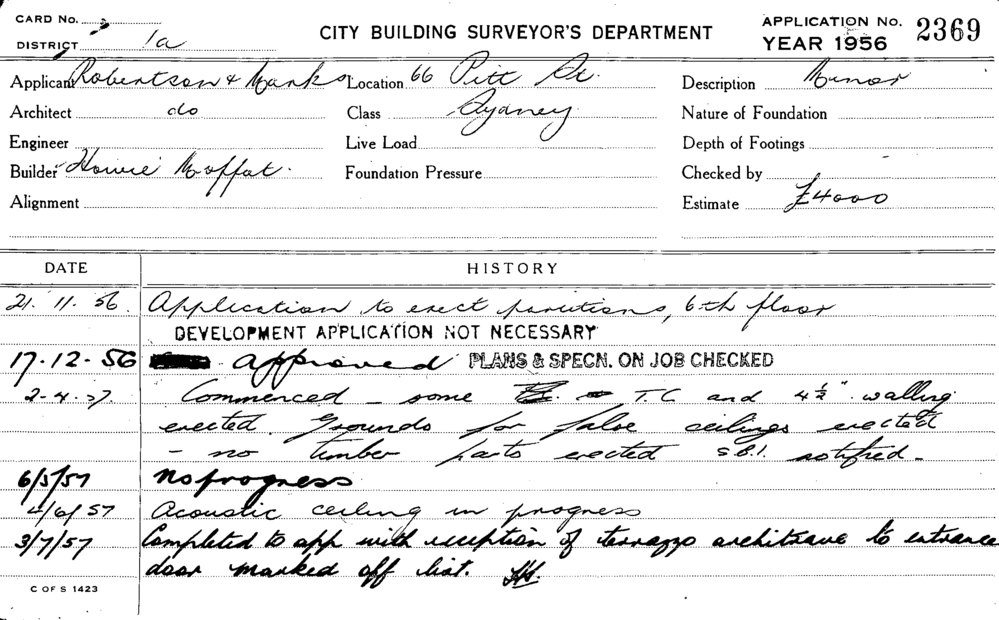 CARD No.
DISTRICT 1a
CITY BUILDING SURVEYOR'S DEPARTMENT
APPLICATION No. 2369
YEAR 1956
Applicant Robertson & Marks Location 66 Pitt St. Description Minor
Architect do Class Sydney Nature of Foundation
Engineer Live Load Depth of Footings
Builder Howie Moffat. Foundation Pressure Checked by
Alignment Estimate £4000
DATE HISTORY
21. 11. 56. Application to erect partitions, 6th floor
DEVELOPMENT APPLICATION NOT NECESSARY
17-12-56 Approved PLANS & SPECN. ON JOB CHECKED
2-4-57 Commenced - some T.C and 4½" walling
erected. Grounds for false ceilings erected
- no timber parts erected S.B.I. notified -
6/5/57 No progress
4/6/57 Acoustic ceiling in progress
3/7/57 Completed to app with exception of terrazzo architrave to entrance
door marked off list.
C OF S 1423